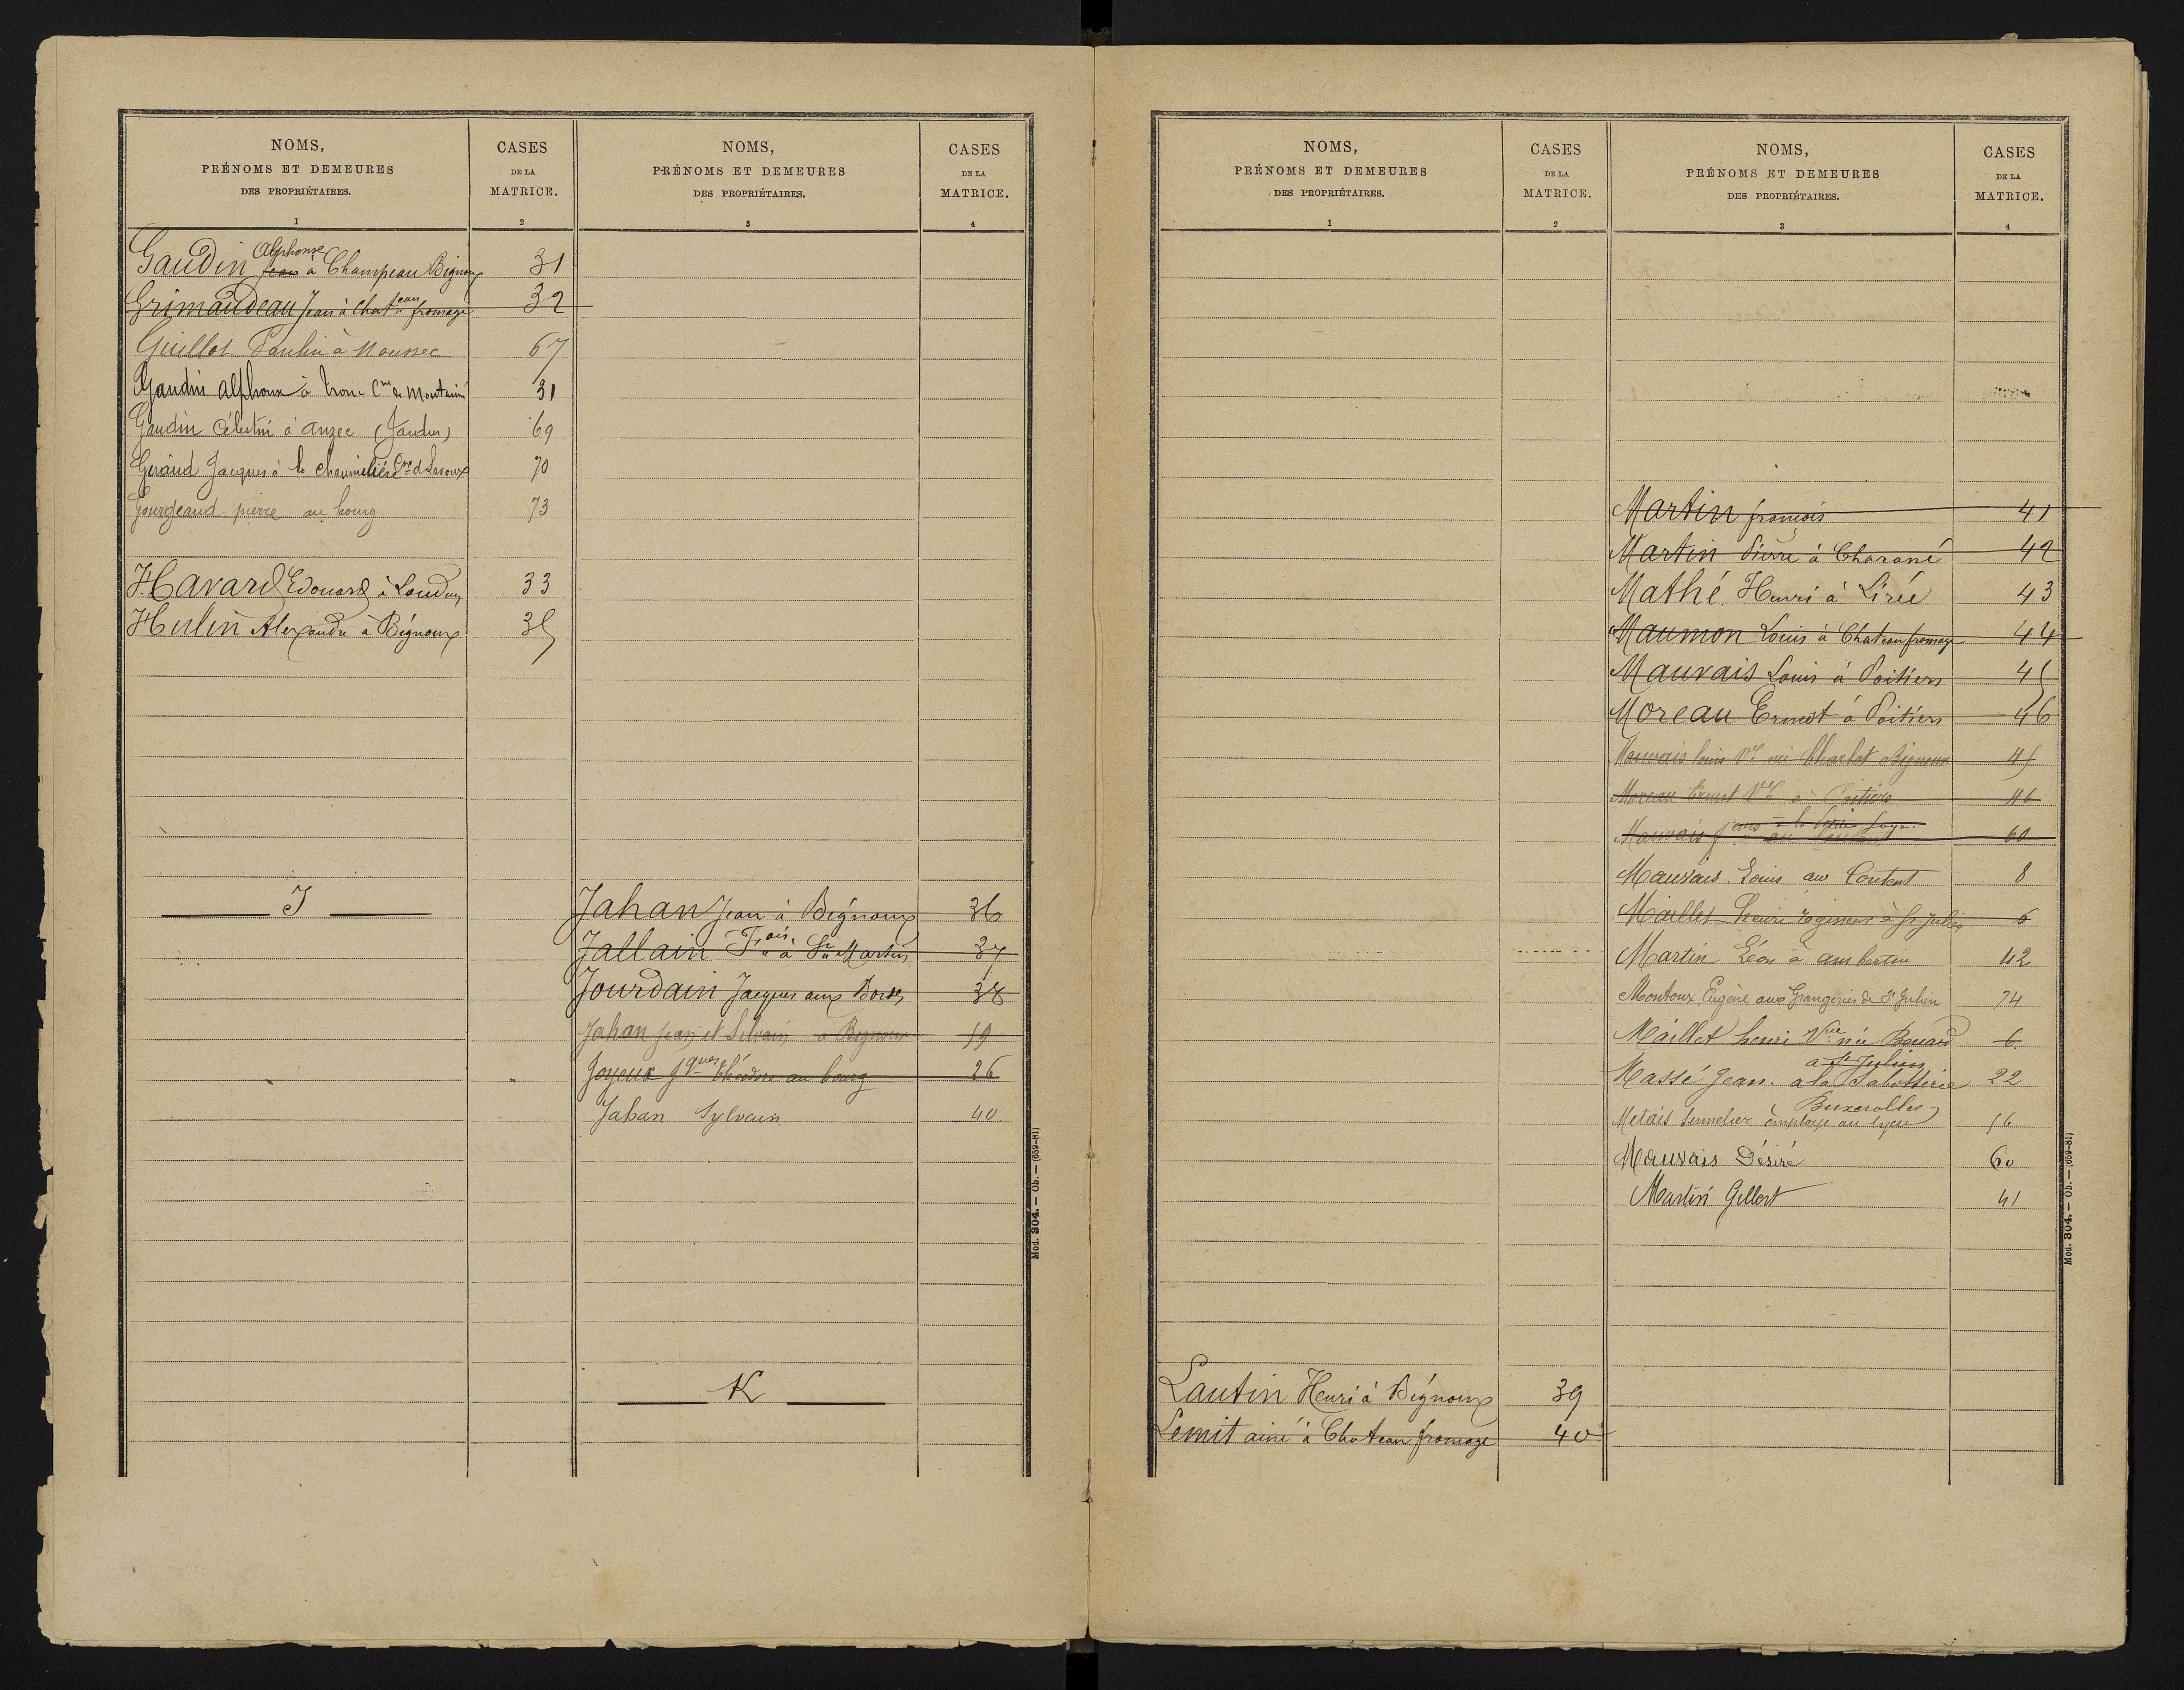 NOMS,
PRÉNOMS ET DEMEURES
DES PROPRIÉTAIRES.
1
CASES
DE LA
MATRICE.
2
Gaudin Jean à Champeau Bignoux 31
Alphonse
Grimaudeau Jean à Chateau fromage 32
Guillot Paulin à Moussec 67
Gaudin Alphonse à Cne de 31
Gaudin Célestin à anzec (Jaudres) 69
Geraud Jacques à la Chauvelière Cne d Lavoux 70
Gourdeaud pierre au bourg 73
Havard Edouard à Loudun 33
Hulin Alexandre à Bignoux 35
I
NOMS,
PRÉNOMS ET DEMEURES
DES PROPRIÉTAIRES.
3
CASES
DE LA
MATRICE.
4
Jahan Jean à Bignoux 36
Jallain Fois à St Martin 37
Jourdain Jacques aux Bordes 38
Jahan Jean et Silvain à Bignoux 19
Joyeux Jques théodore au bourg 26
Jahan Sylvain 40
K
Mod. 304. — Ob. — (659-81)
NOMS,
PRÉNOMS ET DEMEURES
DES PROPRIÉTAIRES.
1
CASES
DE LA
MATRICE.
2
Lautin Henri à Bignoux 39
Lemit ainé à Chateau fromage 40
NOMS,
PRÉNOMS ET DEMEURES
DES PROPRIÉTAIRES.
3
CASES
DE LA
MATRICE.
4
Martin françois 41
Martin Pierre à Charassé 42
Mathé Henri à Lirée 43
Maumon Louis à Chateau fromage 44
Mauvais Louis à Poitiers 45
Moreau Ernest à Poitiers 46
Mauvais louis Ve née Charlot Bignoux 45
Moreau Ernest Vve à Poitiers 46
Mauvais 60
Mauvais Louis au Content 8
Maillet henri régisseur à St Julien 6
Martin Léon à ambertin 42
Montoux Eugène aux Grangeries de St Julien 74
Maillet henri Vve née Benard 6
a St Julien
Massé Jean. a la Sabotterie 22
Buxerolles
Metais tonnelier employé au lycée 56
Mauvais Désiré 60
Martin Gilbert 41
Mod. 304. — Ob. — (659-81)